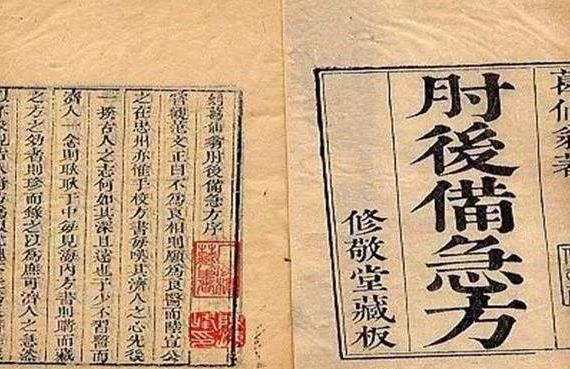 葛仙翁著
肘後備急方
修敬堂藏板
刻葛仙翁肘後備急方序
嘗觀范文正曰不爲良相則願爲良醫而陸宣公
之在忠州亦惟手校方書每嘆其濟人之心先後
一揆古人之志何如其深且遠也予少不習醫而
濟人一念則耿耿于中每見海內方書則購而藏
之方之効者則珍而錄之以爲庶可濟人之急然